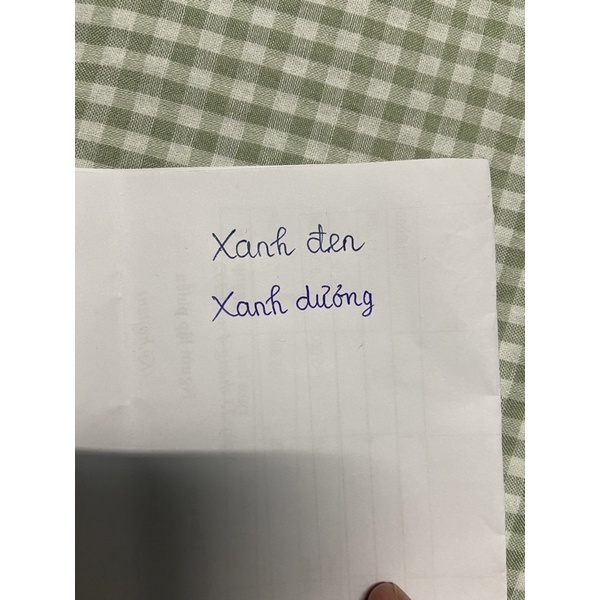 Xanh đen
Xanh dương